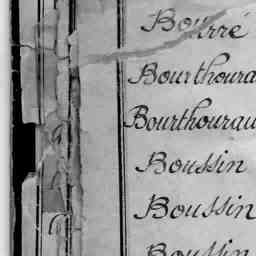 Bourré
Bourthoura
Bourthourau
Boussin
Boussin
Boussin